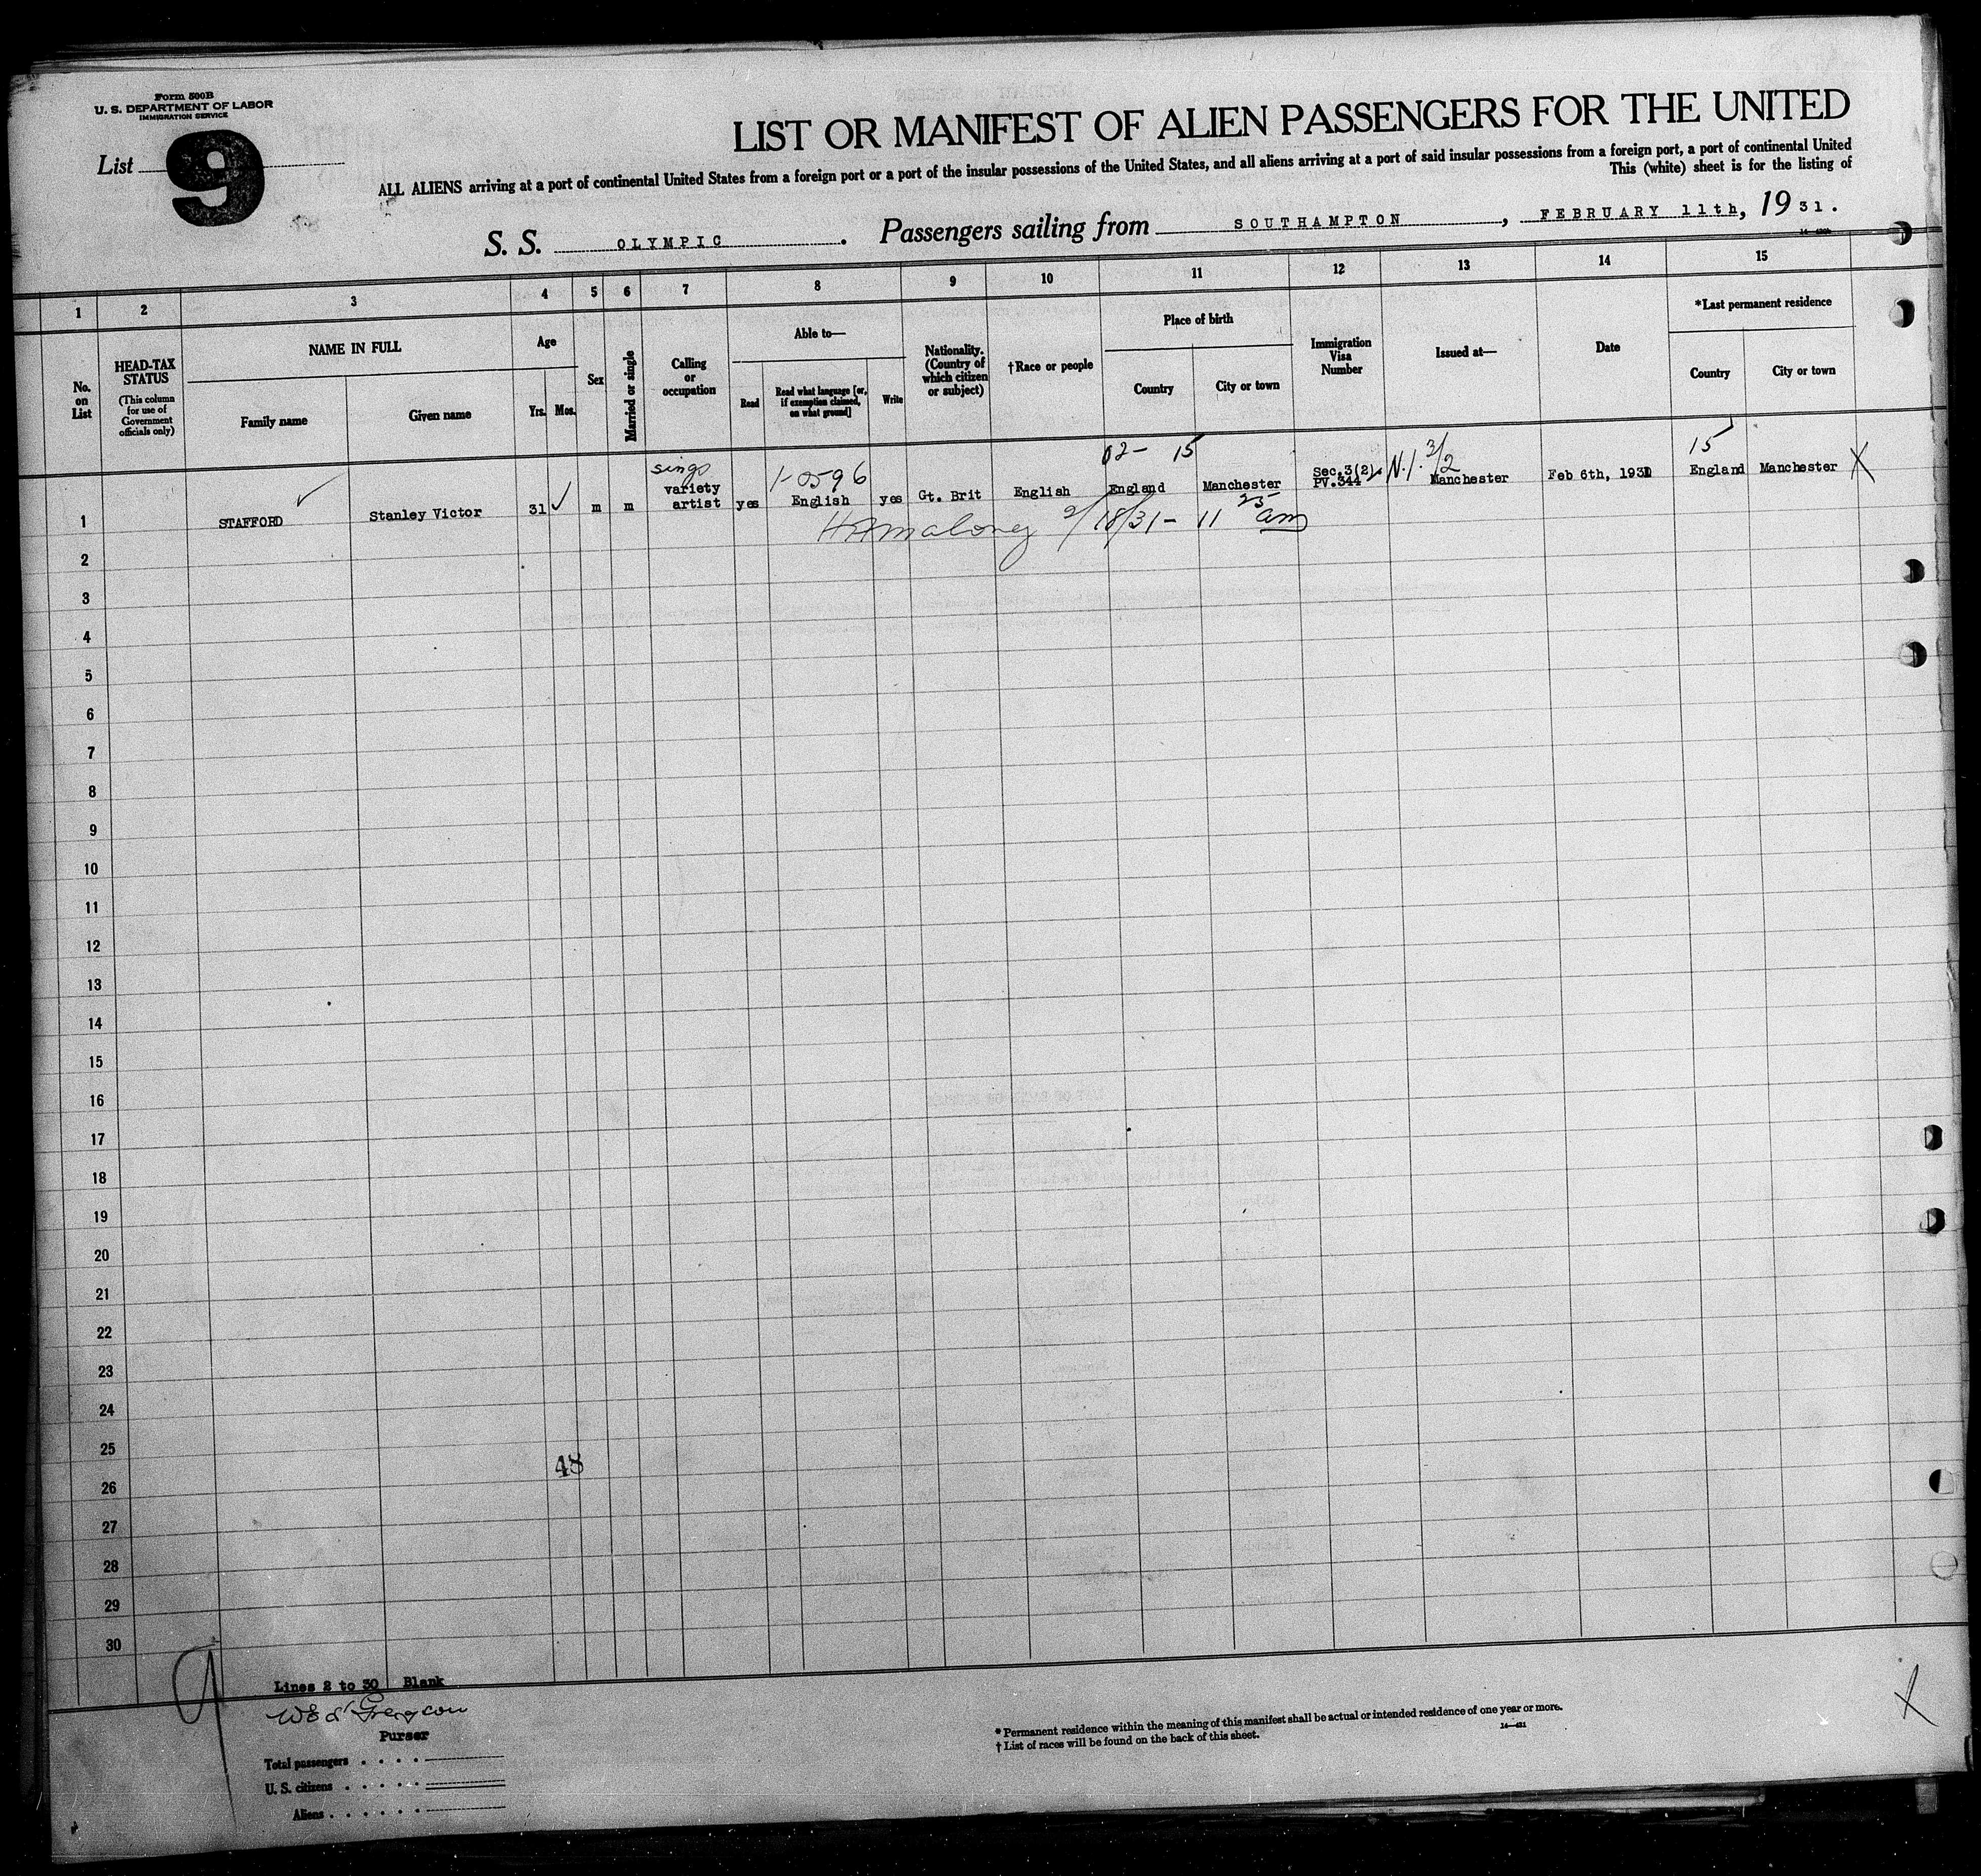 Form 500B
U. S. DEPARTMENT OF LABOR
IMMIGRATION SERVICE
List 9
LIST OR MANIFEST OF ALIEN PASSENGERS FOR THE UNITED
ALL ALIENS arriving at a port of continental United States from a foreign port or a port of the insular possessions of the United States, and all aliens arriving at a port of said insular possessions from a foreign port, a port of continental United
This (white) sheet is for the listing of
S. S. OLYMPIC. Passengers sailing from SOUTHAMPTON, FEBRUARY 11th, 1931.
1 2 3 4 5 6 7 8 9 10 11 12 13 14 15
No. on List
HEAD-TAX STATUS
(This column for use of Government officials only)
NAME IN FULL
Family name
Given name
Age
Yrs.
Mos.
Sex
Married or single
Calling or occupation
Able to—
Read
Read what language [or, if exemption claimed, on what ground]
Write
Nationality. (Country of which citizen or subject)
†Race or people
Place of birth
Country
City or town
Immigration Visa Number
Issued at—
Date
*Last permanent residence
Country
City or town
02- 15
15
1-0596
1 STAFFORD Stanley Victor 31 m m variety artist yes English yes Gt. Brit English England Manchester Sec.3(2) PV.344 N.I. 3/2 Manchester Feb 6th, 1931 England Manchester X
2/18/31 - 11 25 am
2
3
4
5
6
7
8
9
10
11
12
13
14
15
16
17
18
19
20
21
22
23
24
25
48
26
27
28
29
30
9
Lines 2 to 30 Blank
Purser
Total passengers . . . .
U. S. citizens . . . . .
Aliens . . . . . .
* Permanent residence within the meaning of this manifest shall be actual or intended residence of one year or more.
† List of races will be found on the back of this sheet.
14—421
X